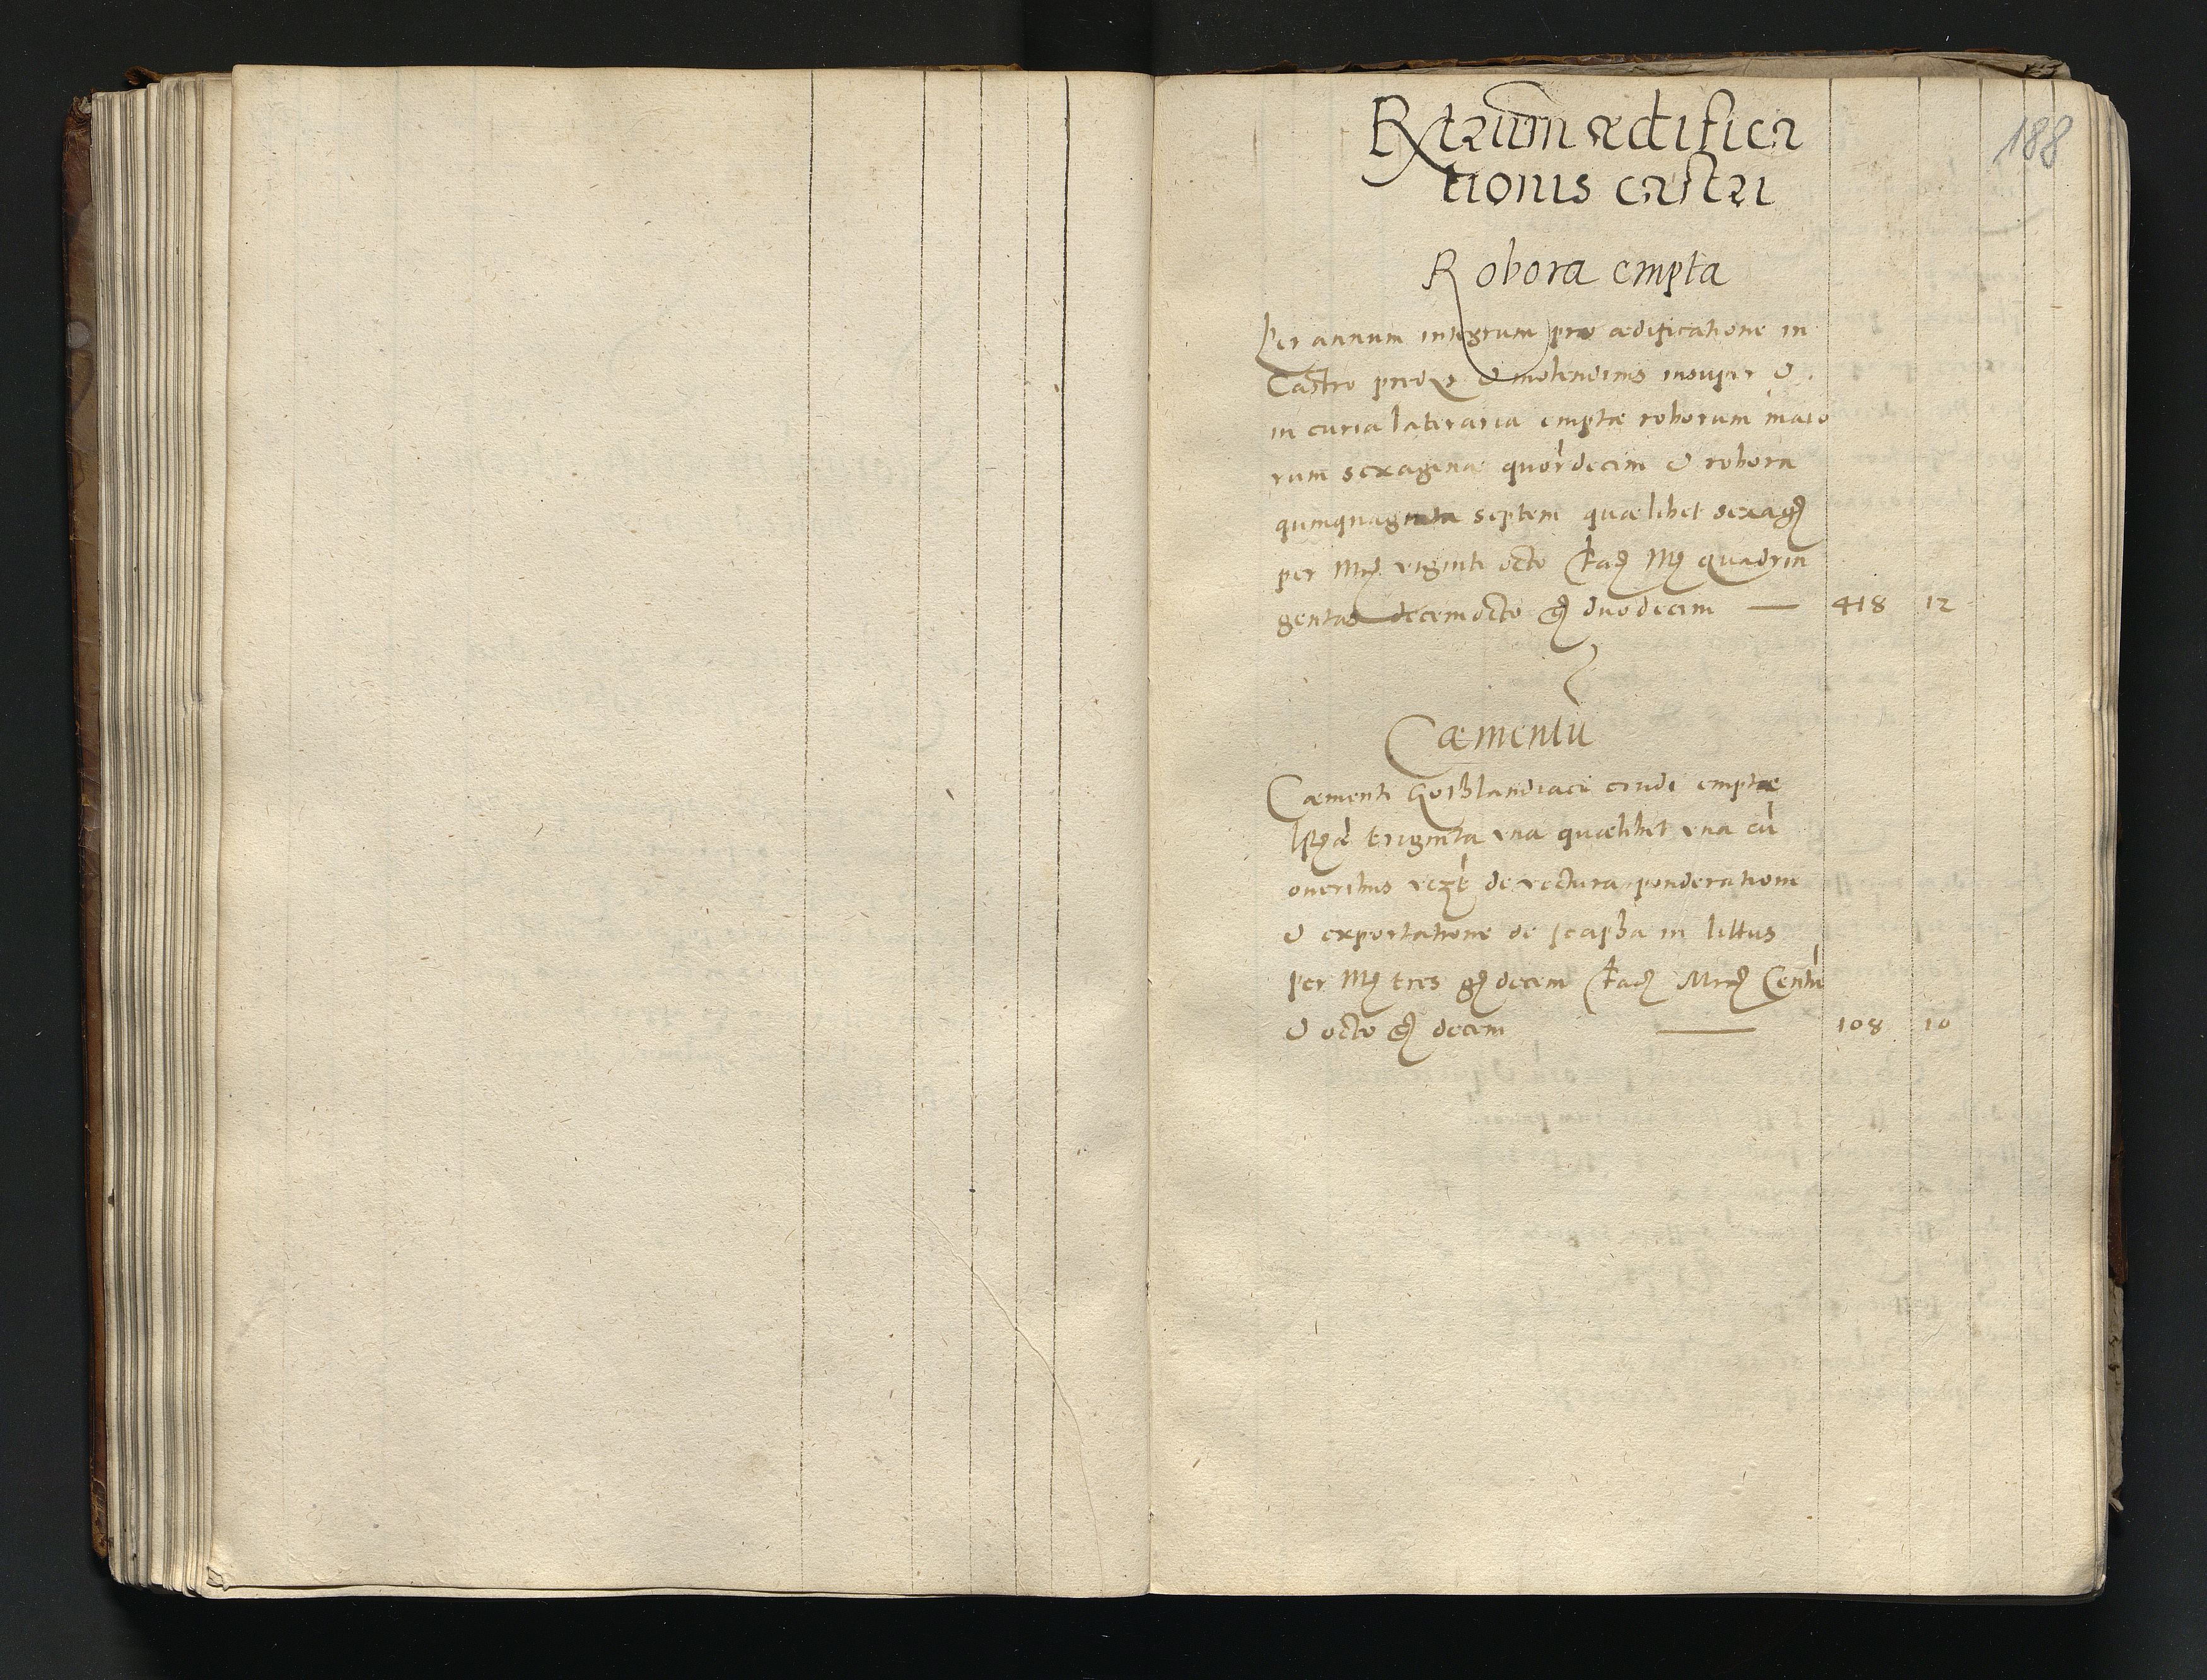 188
Extrum ædifica
tionis castri
Robora empta
Per annum integrum pro ædificatione in
Castro prædio & molendinis insuper &
in curia lateraria emptæ roborum maio
rum sexagenæ quordecim & robora
quinquaginta septem quælibet sexag
per Mrc viginti octo fac M quadrin
gentas decem octo g duodecim — 418 12
Cæmentū
Cæmenti Gothlandiaci crudi emptæ
triginta una quælibet una cū
oneribus de vectura ponderatione
& exportatione de scapha in littus
per M tres g decem fac Mrc Centū
& octo g decem — 108 10